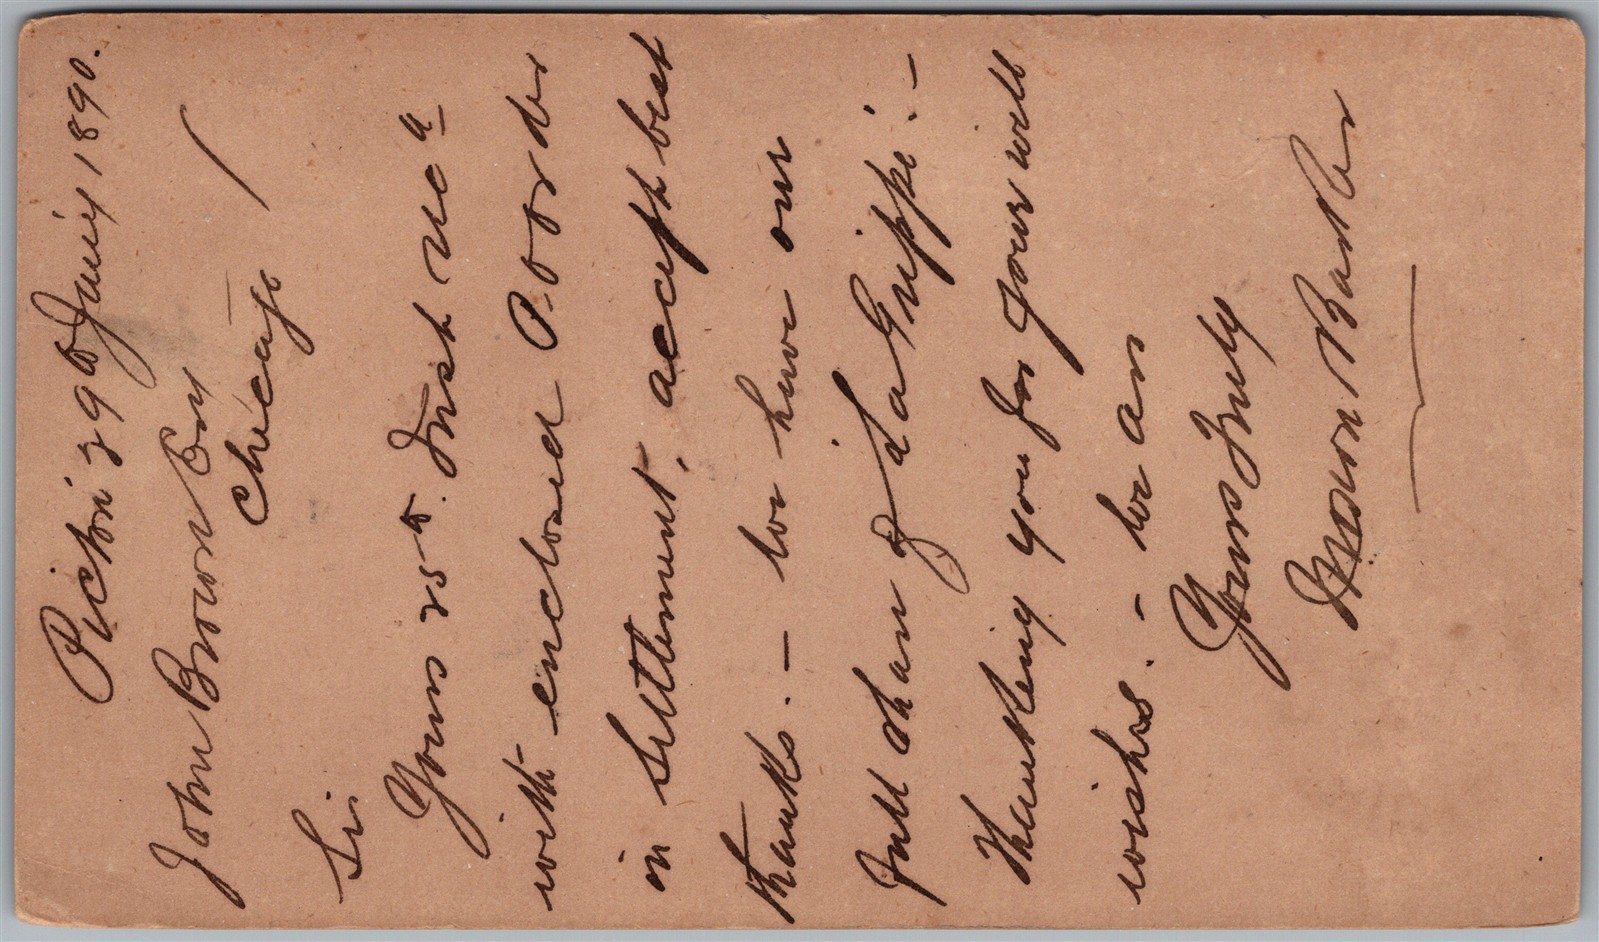 Picton 29th Jany 1890.
John Brown Esq
Chicago
Sir
Yours 25th Inst recd
with enclosed P. Order
in settlement, accept best
thanks. - we have our
full share of La Grippe. -
Thanking you for your well
wishes. - we are
Yours Truly
Mason Barker